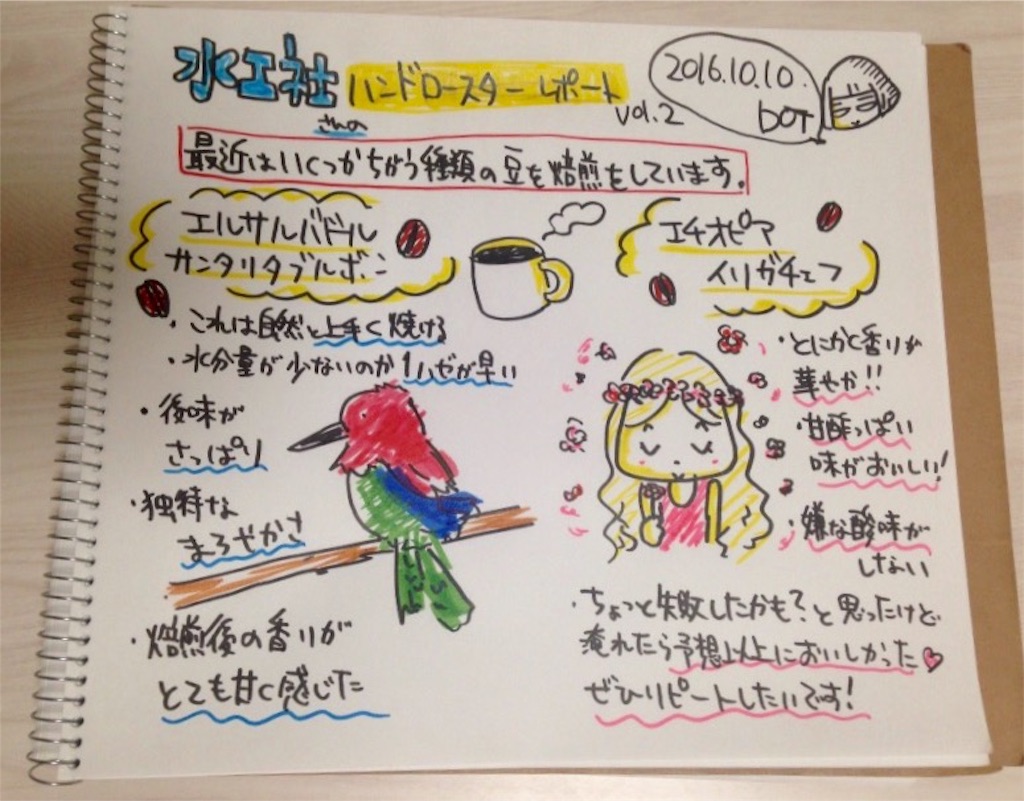 水工社
さんの
ハンドロースターレポート
vol.2
2016.10.10.
DOT
最近はいくつかちがう種類の豆を焙煎をしています。
エルサルバドル
サンタリタブルボン
・これは自然と上手く焼ける
・水分量が少ないのか1ハゼが早い
・後味が
さっぱり
・独特な
まろやかさ
・焙煎後の香りが
とても甘く感じた
エチオピア
イリガチェフ
・とにかく香りが
華やか!!
・甘酸っぱい
味がおいしい!
・嫌な酸味が
しない
・ちょっと失敗したかも?と思ったけど
淹れたら予想以上においしかった♡
ぜひリピートしたいです!